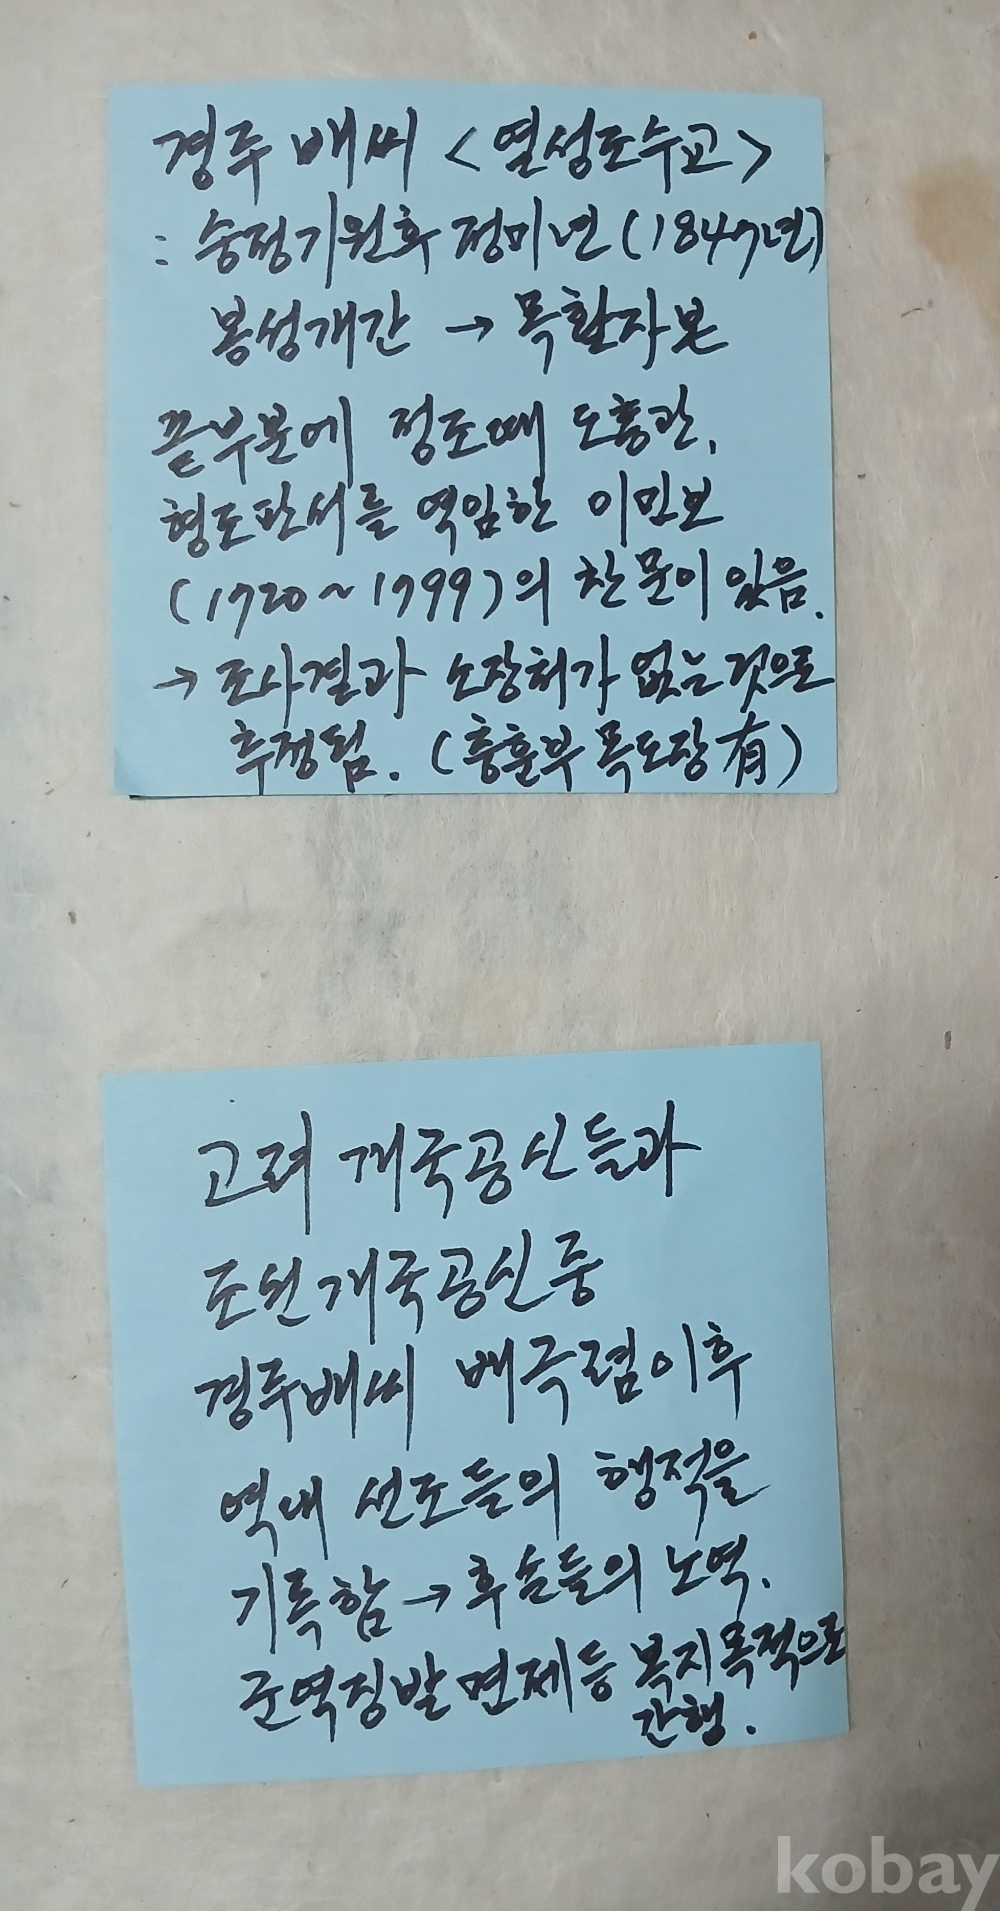 경주 배씨 <열성조수교>
: 숭정기원후 정미년(1847년)
봉성개간 → 목활자본
끝부분에 정조때 도총관,
형조판서를 역임한 이민보
(1720~1799)의 찬문이 있음.
→ 조사결과 소장처가 없는것으로
추정됨. (충훈부 목도장 有)
고려 개국공신들과
조선개국공신중
경주배씨 배극렴이후
역대 선조들의 행적을
기록함 → 후손들의 노역.
군역징발 면제등 복지목적으로
간행.
kobay